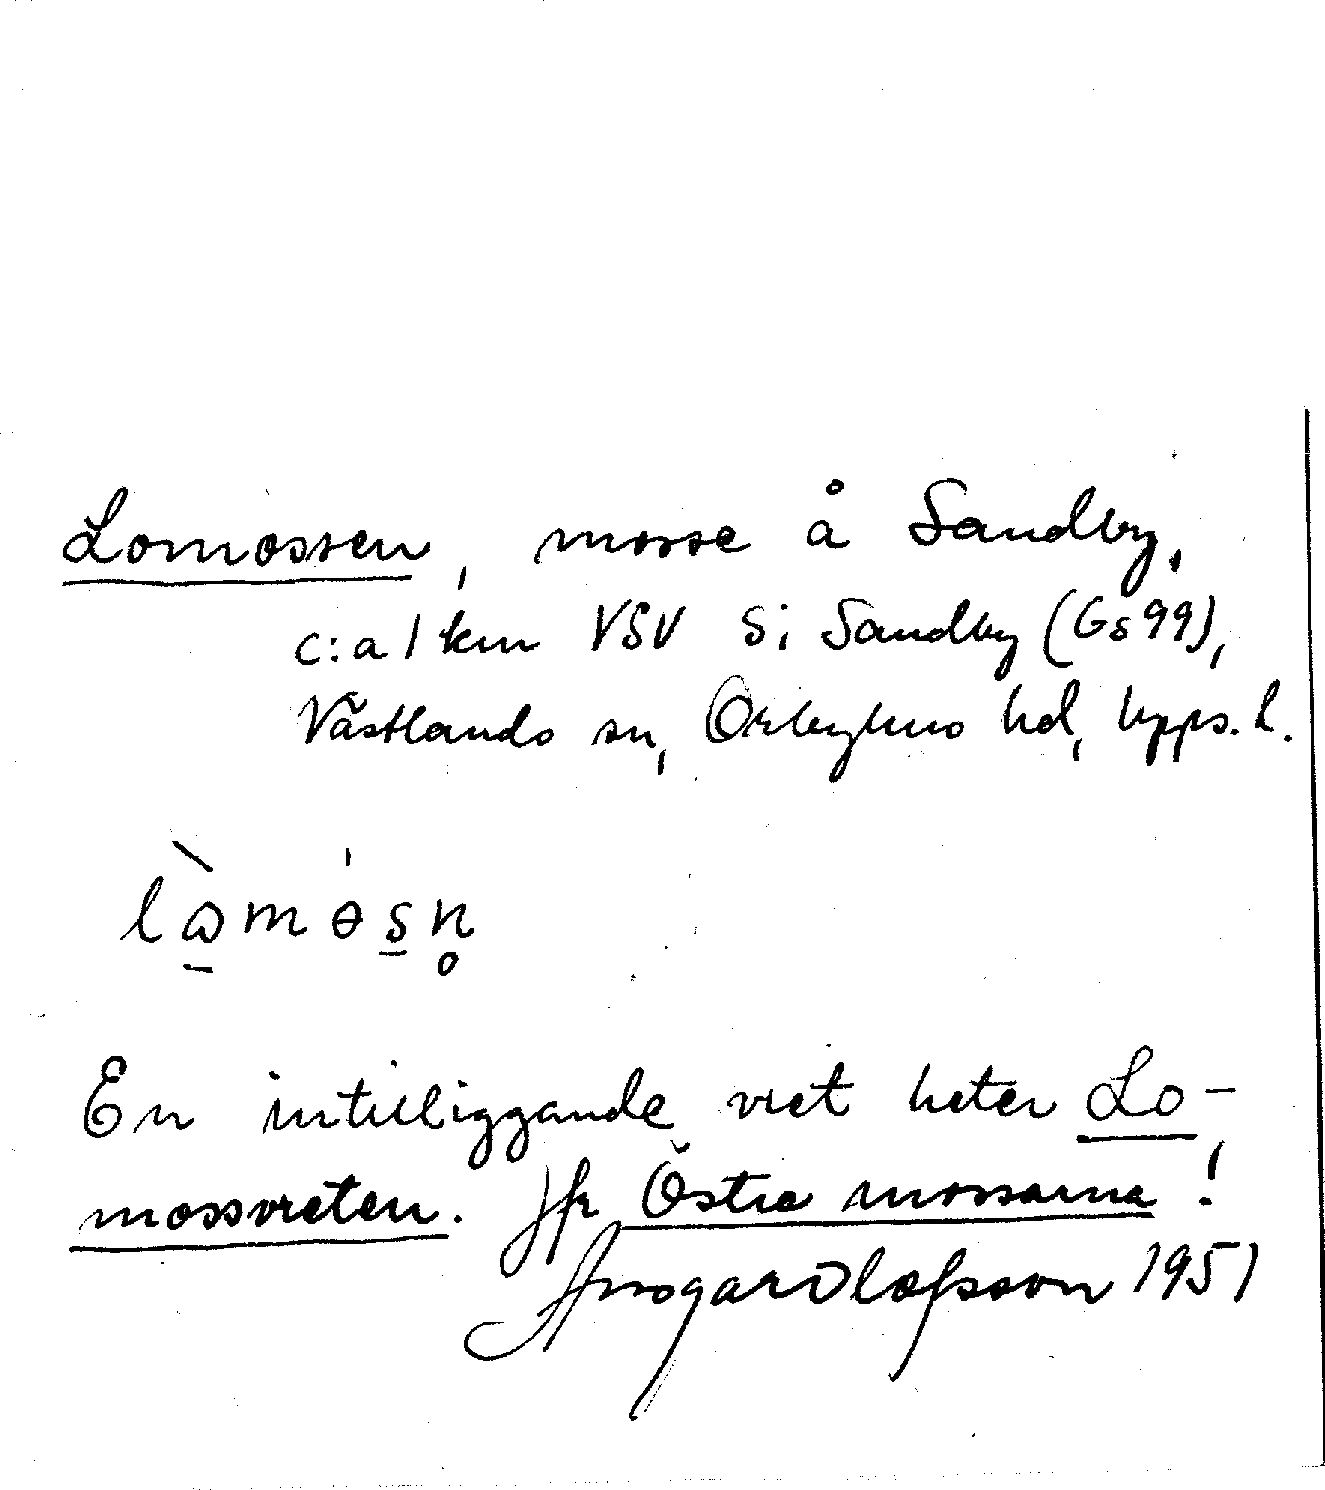 Lomossen, mosse å Sandby,
c:a 1 km VSV S; Sandby (Gs 99),
Västlands sn, Örbyhus hd, Upps. l.
En intilliggande vret heter Lo-
mossvreten. Jfr Östra mossarna!
Ansgar Olofsson 1951